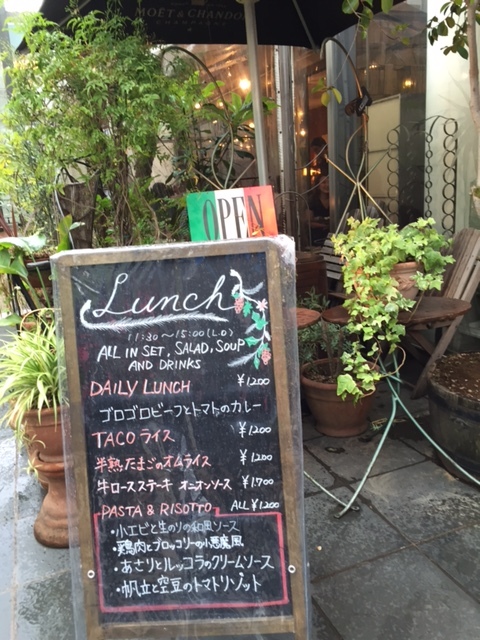 MOËT & CHANDON
CHAMPAGNE
OPEN
Lunch
11:30～15:00(L.O)
ALL IN SET, SALAD, SOUP
AND DRINKS
DAILY LUNCH ¥1.200
ゴロゴロビーフとトマトのカレー
TACO ライス ¥1.200
半熟たまごのオムライス ¥1.200
牛ロースステーキ オニオンソース ¥1.700
PASTA & RISOTTO ALL ¥1.200
・小エビと生のりの和風ソース
・鶏肉とブロッコリーの小悪魔風
・あさりとルッコラのクリームソース
・帆立と空豆のトマトリゾット